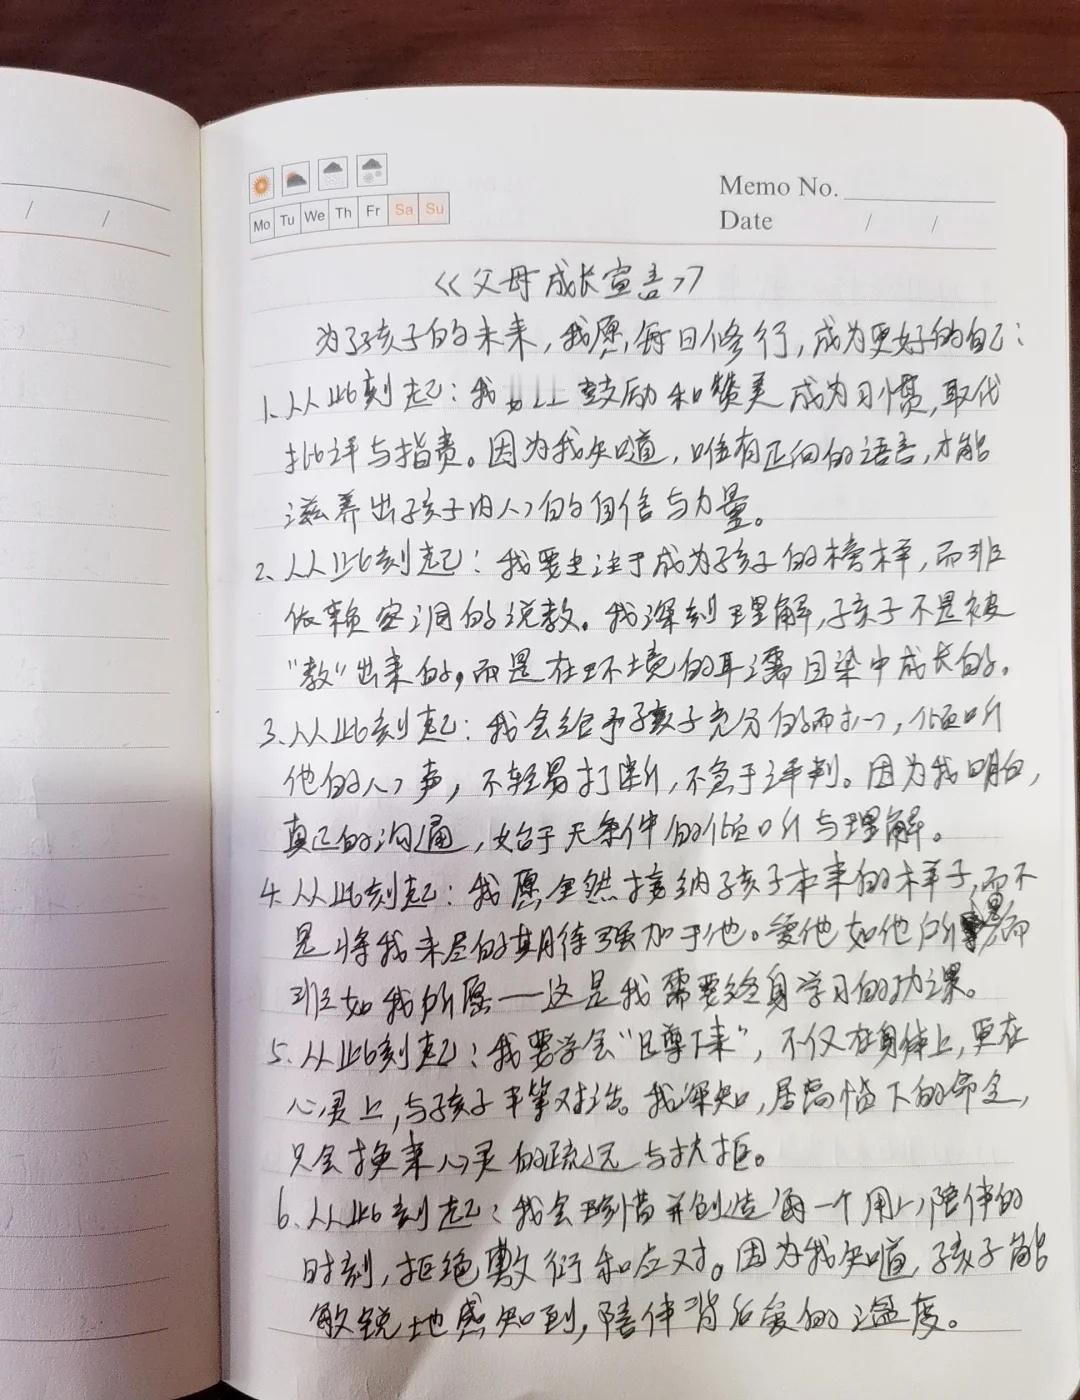 Memo No.
Mo Tu We Th Fr Sa Su
Date / /
/ /
《父母成长宣言》
为了孩子的未来,我愿每日修行,成为更好的自己:
1.从此刻起:我 鼓励和赞美成为习惯,取代
批评与指责。因为我知道,唯有正向的语言,才能
滋养出孩子内心的自信与力量。
2.从此刻起:我要专注于成为孩子的榜样,而非
依赖空洞的说教。我深刻理解,孩子不是被
"教"出来的,而是在环境的耳濡目染中成长的。
3.从此刻起:我会给予孩子充分的耐心,倾听
他的心声,不轻易打断,不急于评判。因为我明白,
真正的沟通,始于无条件的倾听与理解。
4.从此刻起:我愿全然接纳孩子本来的样子,而不
是将我未尽的期待强加于他。爱他如他所是,而
非如我所愿——这是我需要终身学习的功课。
5.从此刻起:我要学会"蹲下来",不仅在身体上,更在
心灵上,与孩子平等对话。我深知,居高临下的命令,
只会换来心灵的疏远与抗拒。
6.从此刻起:我会珍惜并创造每一个用心陪伴的
时刻,拒绝敷衍和应对。因为我知道,孩子能
敏锐地感知到,陪伴背后爱的温度。